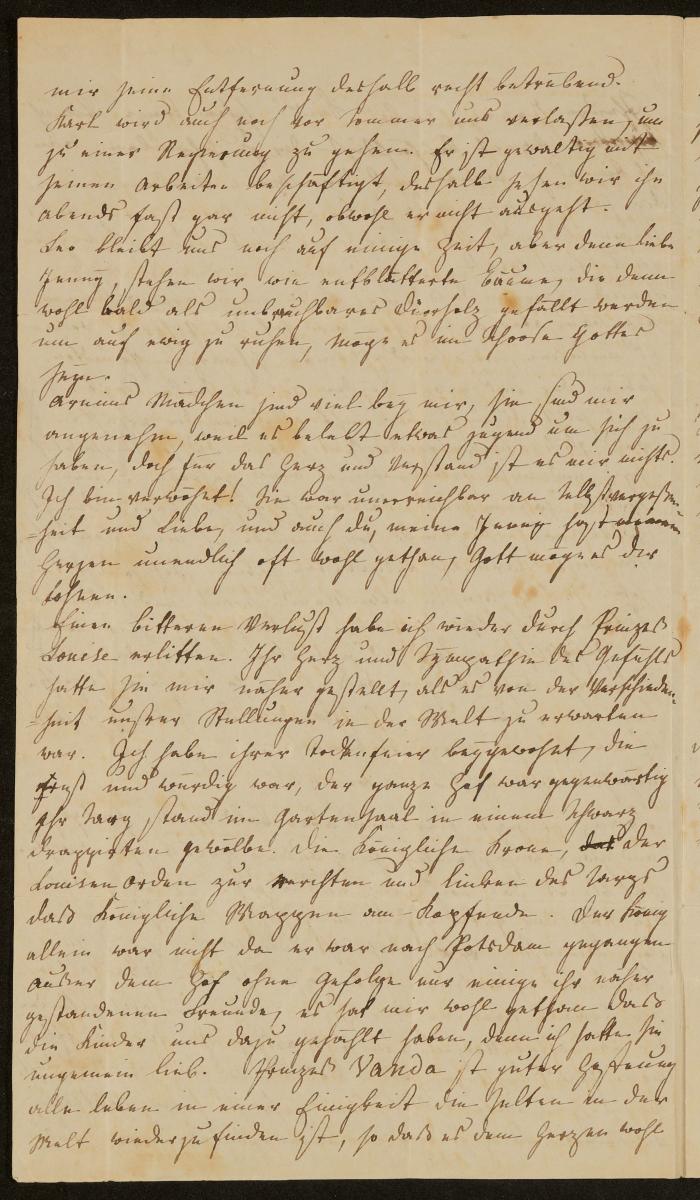 mir seine Entfernung deshalb recht betrübend.
Karl wird auch noch vor Sommer uns verlaßen, um
zu einer Regierung zu gehen. Er ist gewaltig mit
seinen Arbeiten beschäftigt, deshalb sehen wir ihn
abends fast gar nicht, obwohl er nicht ausgeht.
Leo bleibt uns noch auf einige Zeit, aber dann liebe
Jenny, stehen wir wie entblätterte Bäume, die dann
wohl bald als unbrauchbares Dürrholz gefällt werden
um auf ewig zu ruhen, möge es im Schooße Gottes
seyn.
Arnims Mädchen sind viel bey mir, sie sind mir
angenehm, weil es belebt etwas Jugend um sich zu
haben, doch für das Herz und Verstand ist es mir nichts.
Ich bin verwöhnt! Sie war unerreichbar an Selbstvergeßen-
-heit und Liebe, und auch du, meine Jenny hast meinem
Herzen unendlich oft wohl gethan, Gott möge es dir
lohnen.
Einen bitteren Verlust habe ich wieder durch Prinzes
Louise erlitten. Ihr Herz und Sympathie des Gefühls
hatte sie mir näher gestellt, als es von der Verschieden-
-heit unsrer Stellungen in der Welt zu erwarten
war. Ich habe ihrer Todtenfeier beygewohnt, die
ernst und würdig war, der ganze Hof war gegenwärtig
Ihr Sarg stand im Gartensaal in einem schwarz
drappirten gewölbe. Die Königliche Krone, der
Louisen Orden zur rechten und linken des Sargs
daß Königliche Wappen am Kopfende. Der König
allein war nicht da er war nach Potsdam gegangen
außer dem Hof ohne Gefolge nur einige ihr näher
gestandenen Freunde, es hat mir wohl gethan daß
die Kinder uns dazu gezählt haben, denn ich hatte sie
ungemein lieb. Prinzes Vanda ist guter Hoffnung
alle leben in einer Einigkeit die selten in der
Welt wieder zu finden ist, so daß es dem Herzen wohl